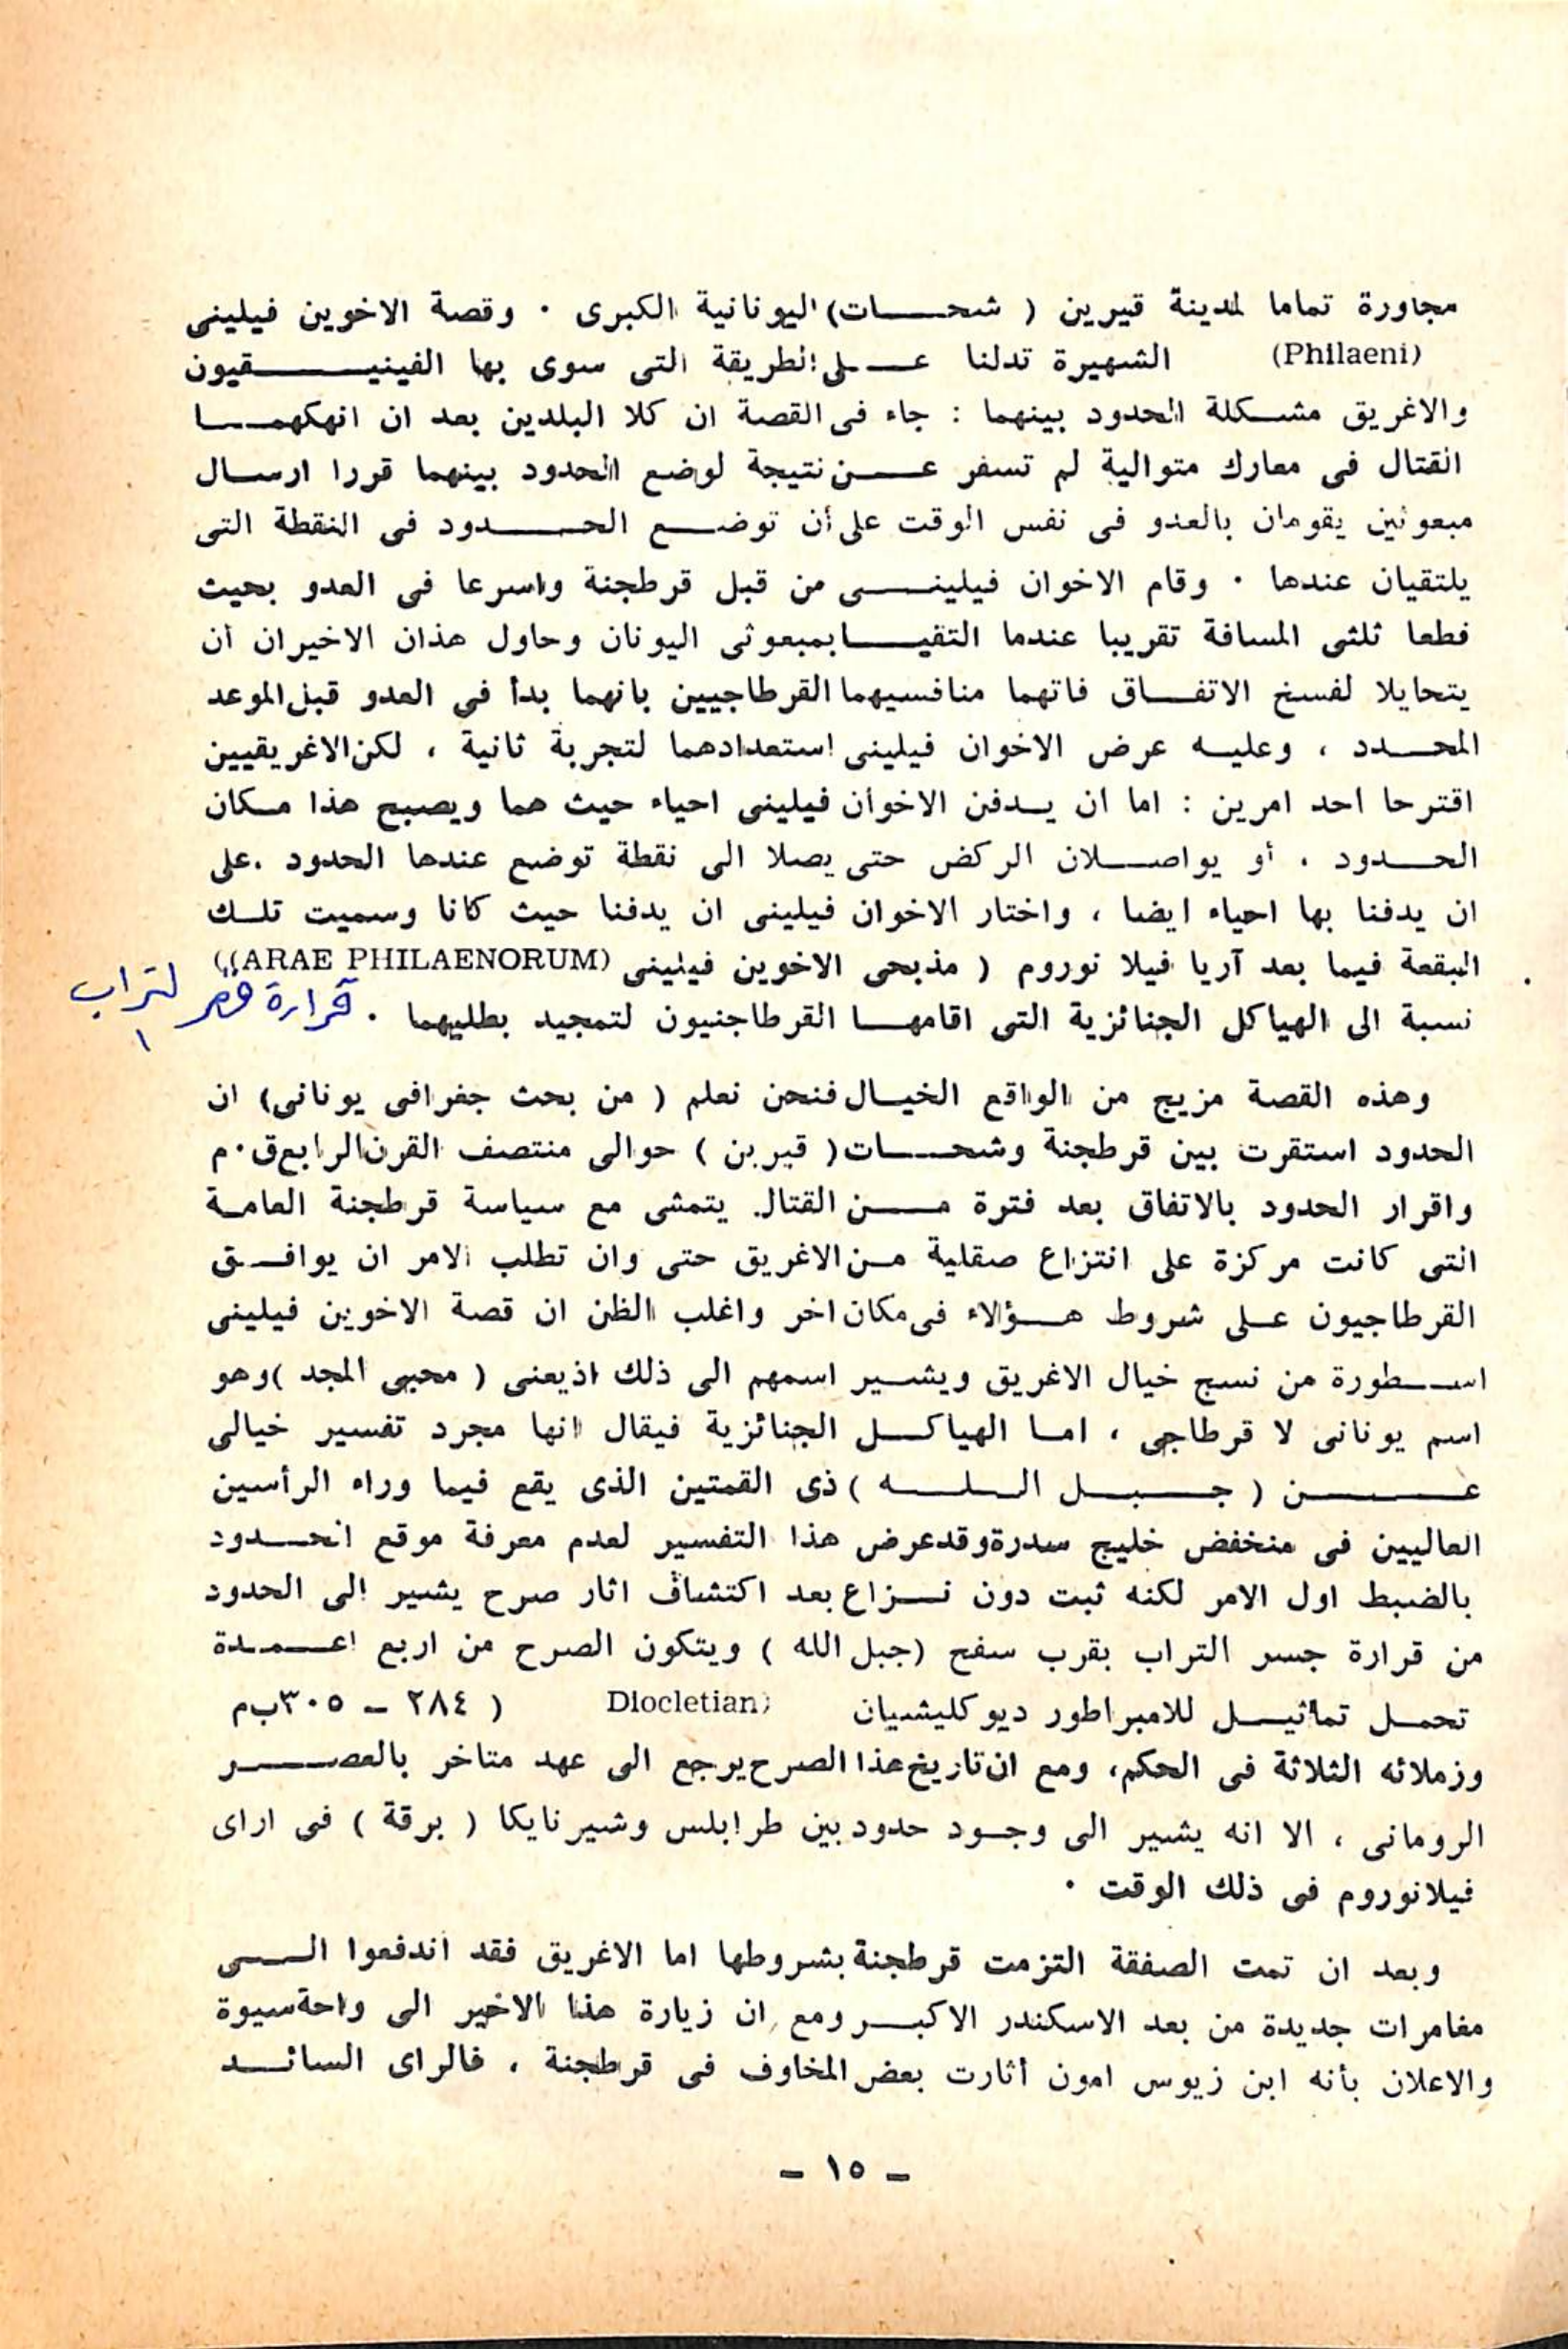 مجاورة تماما لمدينة قيرين ( شحات) اليونانية الكبرى . وقصة الاخوين فيلينى
(Philaeni) الشهيرة تدلنا على الطريقة التى سوى بها الفينيقيون
والاغريق مشكلة الحدود بينهما : جاء فى القصة ان كلا البلدين بعد ان انهكهما
القتال فى معارك متوالية لم تسفر عن نتيجة لوضع الحدود بينهما قررا ارسال
مبعوثين يقومان بالعدو فى نفس الوقت على أن توضع الحدود فى النقطة التى
يلتقيان عندها . وقام الاخوان فيلينى من قبل قرطجنة واسرعا فى العدو بحيث
قطعا ثلثى المسافة تقريبا عندما التقيا بمبعوثى اليونان وحاول هذان الاخيران أن
يتحايلا لفسخ الاتفاق فاتهما منافسيهما القرطاجيين بانهما بدأ فى العدو قبل الموعد
المحدد ، وعليه عرض الاخوان فيلينى استعدادهما لتجربة ثانية ، لكن الاغريقيين
اقترحا احد امرين : اما ان يدفن الاخوان فيلينى احياء حيث هما ويصبح هذا مكان
الحدود ، أو يواصلان الركض حتى يصلا الى نقطة توضع عندها الحدود ، على
ان يدفنا بها احياء ايضا ، واختار الاخوان فيلينى ان يدفنا حيث كانا وسميت تلك
البقعة فيما بعد آريا فيلا نوروم ( مذبحى الاخوين فيلينى (ARAE PHILAENORUM))
نسبة الى الهياكل الجنائزية التى اقامها القرطاجنيون لتمجيد بطليهما .
قرارة قصر التراب
وهذه القصة مزيج من الواقع الخيال فنحن نعلم ( من بحث جغرافى يونانى) ان
الحدود استقرت بين قرطجنة وشحات ( قيرين ) حوالى منتصف القرن الرابع ق.م
واقرار الحدود بالاتفاق بعد فترة من القتال. يتمشى مع سياسة قرطجنة العامة
التى كانت مركزة على انتزاع صقلية من الاغريق حتى وان تطلب الامر ان يوافق
القرطاجيون على شروط هؤلاء فى مكان اخر واغلب الظن ان قصة الاخوين فيلينى
اسطورة من نسج خيال الاغريق ويشير اسمهم الى ذلك اذيعنى ( محبى المجد )وهو
اسم يونانى لا قرطاجى ، اما الهياكل الجنائزية فيقال انها مجرد تفسير خيالى
عن ( جبل الله ) ذى القمتين الذى يقع فيما وراء الرأسين
العاليين فى منخفض خليج سدرة وقد عرض هذا التفسير لعدم معرفة موقع الحدود
بالضبط اول الامر لكنه ثبت دون نزاع بعد اكتشاف اثار صرح يشير الى الحدود
من قرارة جسر التراب بقرب سفح (جبل الله ) ويتكون الصرح من اربع اعمدة
تحمل تماثيل للامبراطور ديوكليشيان (Diocletian ( ٢٨٤ - ٣٠٥ ب م
وزملائه الثلاثة فى الحكم، ومع ان تاريخ هذا الصرح يرجع الى عهد متاخر بالعصر
الرومانى ، الا انه يشير الى وجود حدود بين طرابلس وشيرنايكا ( برقة ) فى اراى
فيلانوروم فى ذلك الوقت .
وبعد ان تمت الصفقة التزمت قرطجنة بشروطها اما الاغريق فقد اندفعوا الى
مغامرات جديدة من بعد الاسكندر الاكبر ومع ان زيارة هذا الاخير الى واحة سيوة
والاعلان بأنه ابن زيوس امون أثارت بعض المخاوف فى قرطجنة ، فالراى السائد
- ١٥ -